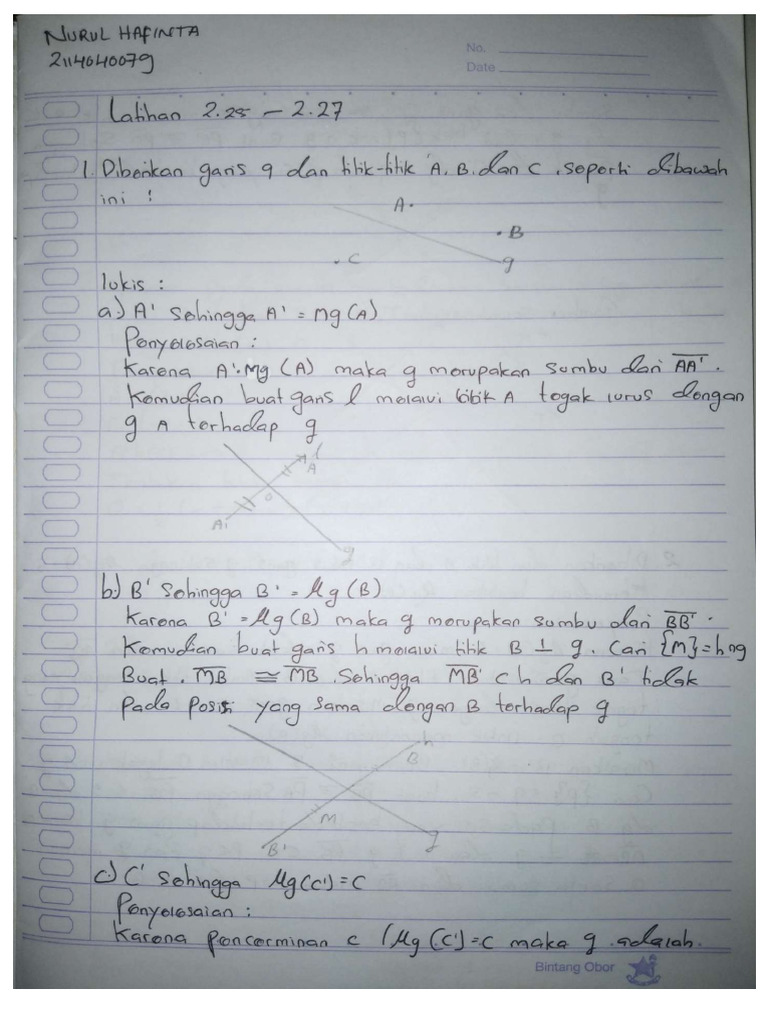 NURUL HAFINTA
2114040079
No.
Date
Latihan 2.25 – 2.27
1. Diberikan garis g dan titik-titik A, B, dan C, seperti dibawah
ini !
A
B
C
g
lukis :
a) A' sehingga A' = Mg (A)
Penyelesaian :
Karena A' = Mg (A) maka g merupakan sumbu dari AA'.
Kemudian buat garis l melalui titik A tegak lurus dengan
g A terhadap g
l
A
o
A'
g
b.) B' sehingga B' = Mg (B)
Karena B' = Mg (B) maka g merupakan sumbu dari BB'.
Kemudian buat garis h melalui titik B ⊥ g. Cari {M} = h∩g
Buat . MB ≅ MB . Sehingga MB' ⊂ h dan B' tidak
pada posisi yang sama dengan B terhadap g
h
B
M
B'
g
c.) C' sehingga Mg (C') = C
Penyelesaian :
Karena pencerminan c / Mg (C') = C maka g adalah.
Bintang Obor